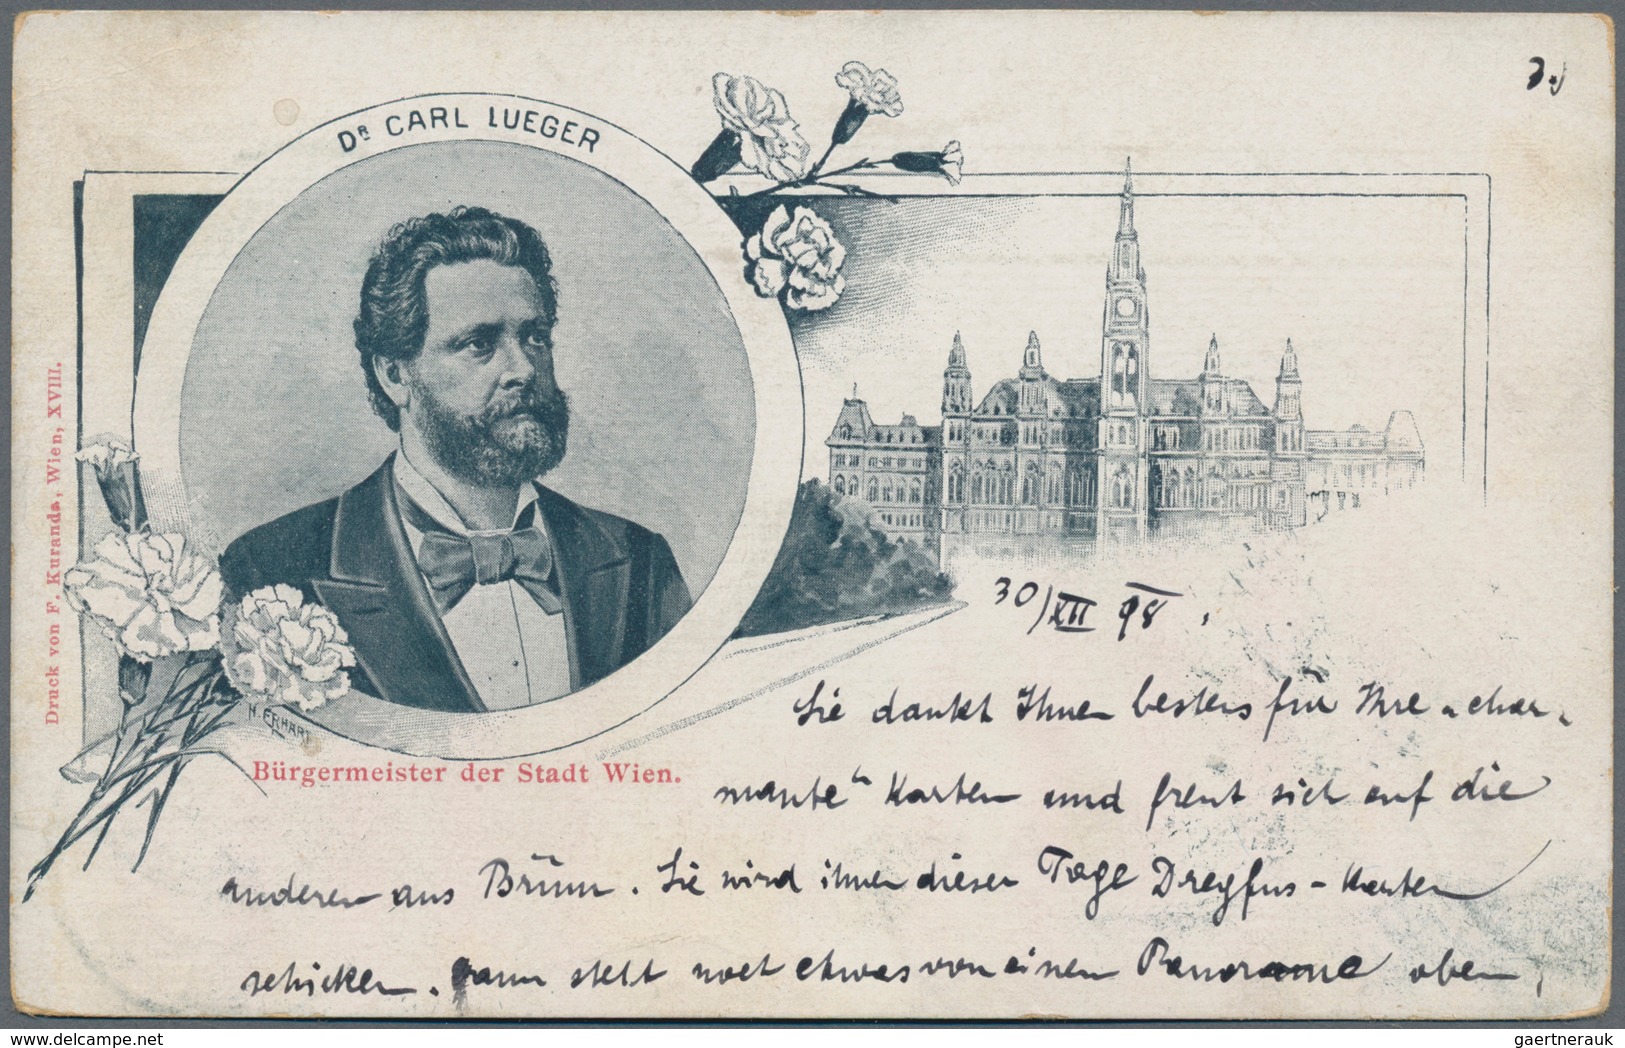 3.)
DR CARL LUEGER
Druck von F. Kuranda, Wien, XVIII.
H. ERHART
Bürgermeister der Stadt Wien.
30/XII 98.
Sie dankt Ihnen bestens für Ihre „char-
mante“ Karten und freut sich auf die
anderen aus Brünn. Sie wird ihnen dieser Tage Dreyfus-Karten
schicken. Dann steht noch etwas von einem Panorama oben,
delcampe.net
gaertnerauk